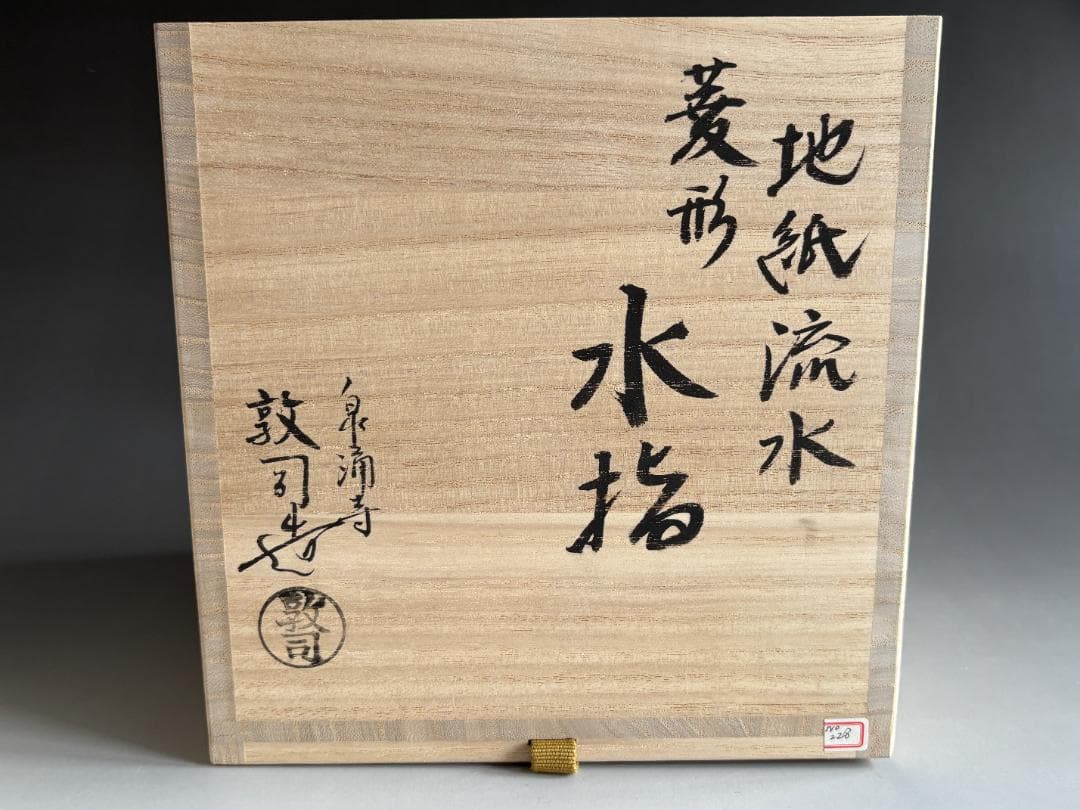 地紙流水
菱形
水指
泉涌寺
敦司造
敦司
NO
228